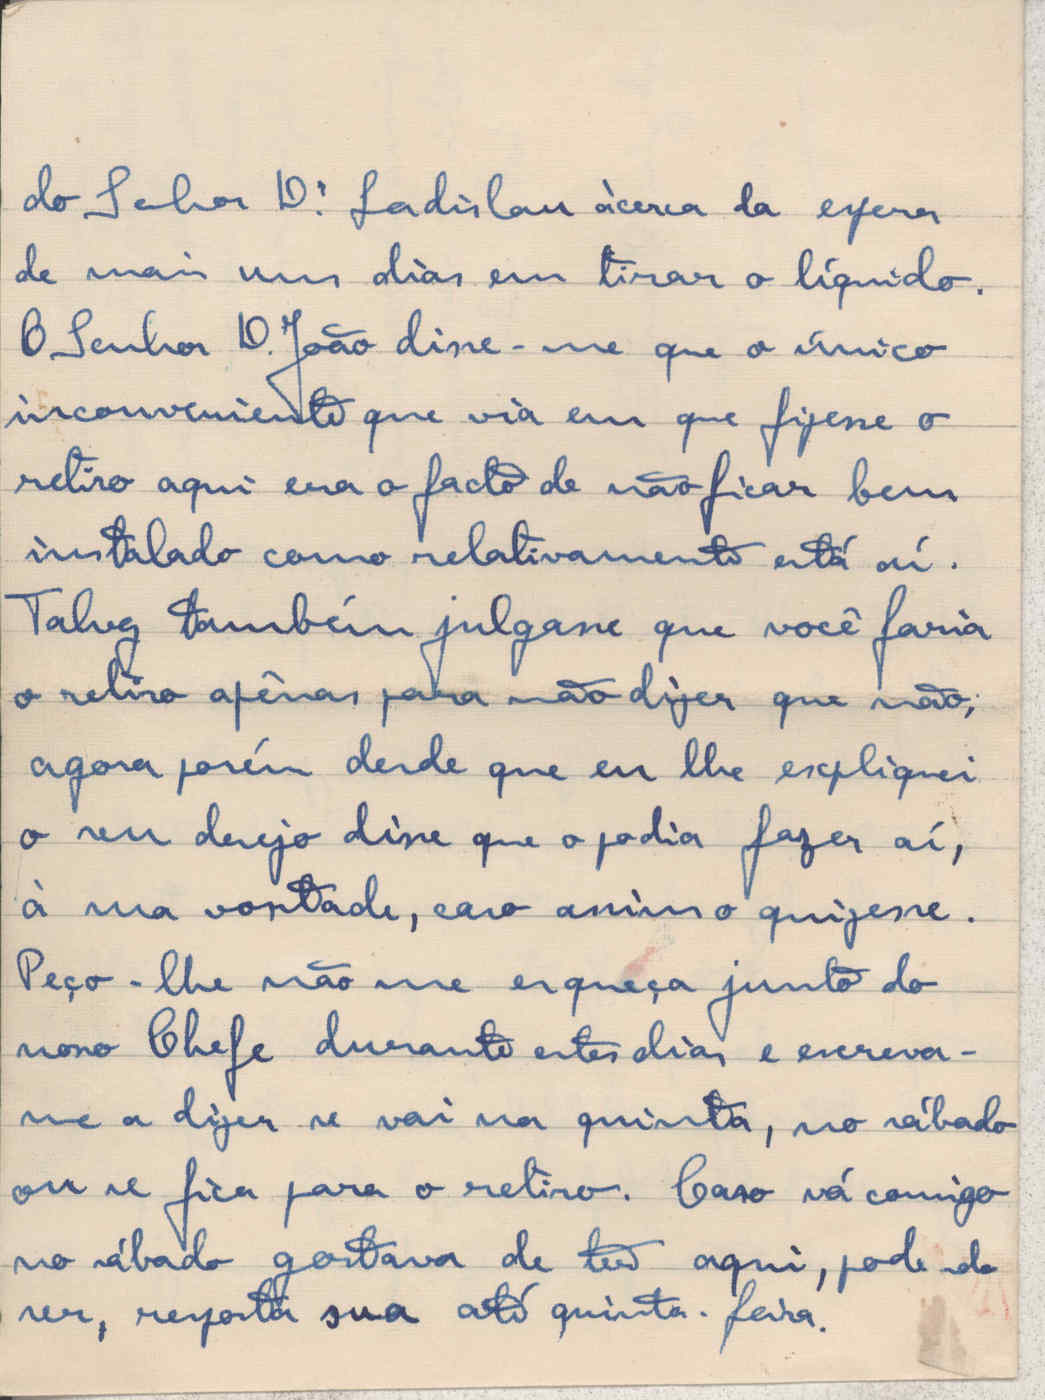 do Senhor D.r Ladislau àcerca da espera
de mais uns dias em tirar o líquido.
O Senhor D. João disse-me que o único
inconveniente que via em que fizesse o
retiro aqui era o facto de não ficar bem
instalado como relativamente está aí.
Talvez também julgasse que você faria
o retiro apênas para não dizer que não;
agora porém desde que eu lhe expliquei
o seu desejo disse que o podia fazer aí,
à sua vontade, caso assim o quizesse.
Peço-lhe não me esqueça junto do
nosso Chefe durante estes dias e escreva-
me a dizer se vai na quinta, no sábado
ou se fica para o retiro. Caso vá comigo
no sábado gostava de ter aqui, podendo
ser, resposta sua até quinta-feira.